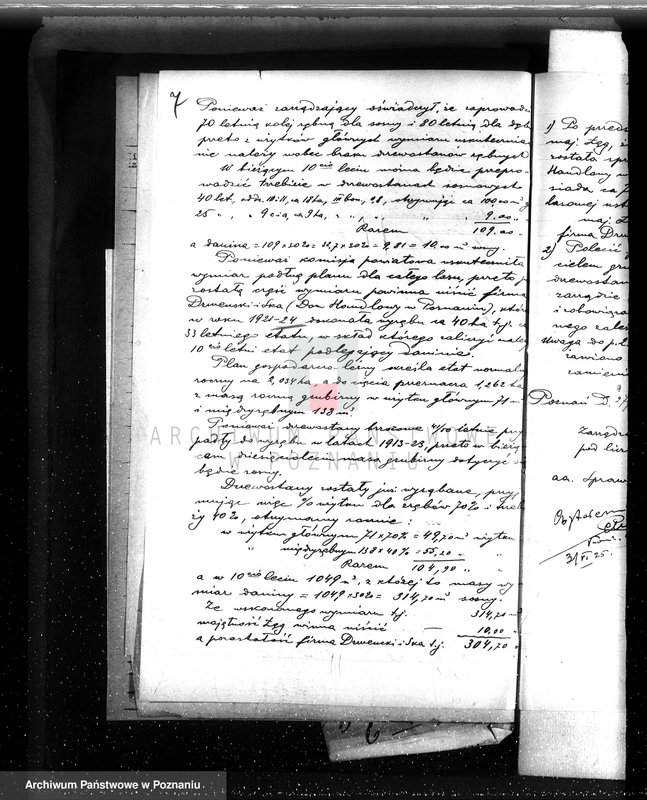 7
Ponieważ zarządzający oświadczył, że zaprowadzi
70 letnią kolej rębną dla sosny i 80 letnią dla dęb
przeto z użytków głównych wymiaru uskuteczniać
nie należy wobec braku drzewostanów rębnych
W bieżącym 10 leciu można będzie przepro-
wadzić trzebieże w drzewostanach sosnowych
40 let. ca 100,00 m³
25 " 9 cia, ca 9 ha, " 9.00 "
Razem 109.00
a danina = 109 × 30% = 32,7 × 30% = 9,81 = 10,00 m³ sosny.
Ponieważ komisja powiatowa uskuteczniła
wymiar podług planu dla całego lasu, przeto po
zostałą część wymiaru powinna uiścić firma
Drwenski i Ska (Dom Handlowy w Poznaniu), któr
w roku 1921-24 dokonała wyrębu ca 40 ha t.j. ca
33 letniego etatu, w skład którego zaliczyć należ
10 letni etat podlegający daninie.
Plan gospodarczo leśny określa etat normaln
roczny na 2,034 ha, a do cięcia przeznacza 1.262 ha
z masą roczną grubizny w użytku głównym 71 m³
i międzyrębnym 138 m³.
Ponieważ drzewostany brzozowe letnie przy
padły do wyrębu w latach 1913-23, przeto w bież
cem dziesięcioleciu masa grubizny dotyczyć się
będzie sosny.
Drzewostany zostały już wyrąbane, przyj
mując więc % użytku dla zrębów 70% i trzeb
ży 40%, otrzymamy rocznie:
w użytku głównym 71 × 70% = 49,70 m³ użytku
" międzyrębnym 138 × 40% = 55,20 " "
Razem 104,90 " "
a w 10 leciu 1049 m³, z której to masy wy-
miar daniny = 1049 × 30% = 314,70 m³ sosny.
Ze wskazanego wymiaru t.j. 314,70 m³
majętność Łęg winna uiścić — 10,00 "
a pozostałość firma Drwenski i Ska t.j. 304,70 "
1) Po przeds
maj. Łęg, ż
została spr
Handlowy w
siada ca
lasowej ust
maj. Ł
firma Drw
2) Polecić
cielem gr
drzewostan
zarządzie
i obowiąza
nego zale
Uwaga do p. 1.
Poznań d.
Zarządz
pod lice
aa. Spraw
3/VI 25.
ARCHIWUM PAŃSTWOWE
W POZNANIU
Archiwum Państwowe w Poznaniu